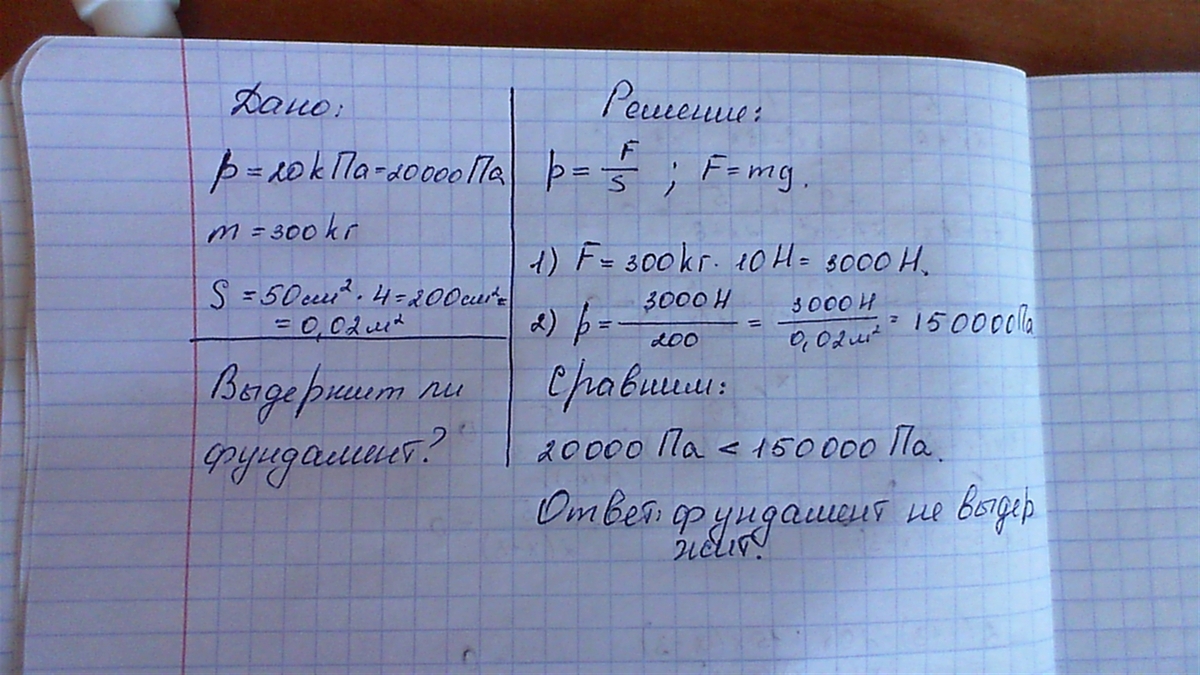 Дано:
p = 20k Па = 20000 Па
m = 300 kг
S = 50 см² · 4 = 200 см² =
= 0,02 м²
Выдержит ли
фундамент?
Решение:
p = F/S ; F = mg.
1) F = 300 kг · 10 Н = 3000 Н.
2) p = 3000 Н/200 = 3000 Н/0,02 м² = 150000 Па
Сравним:
20000 Па < 150000 Па.
Ответ: фундамент не выдер
жит.